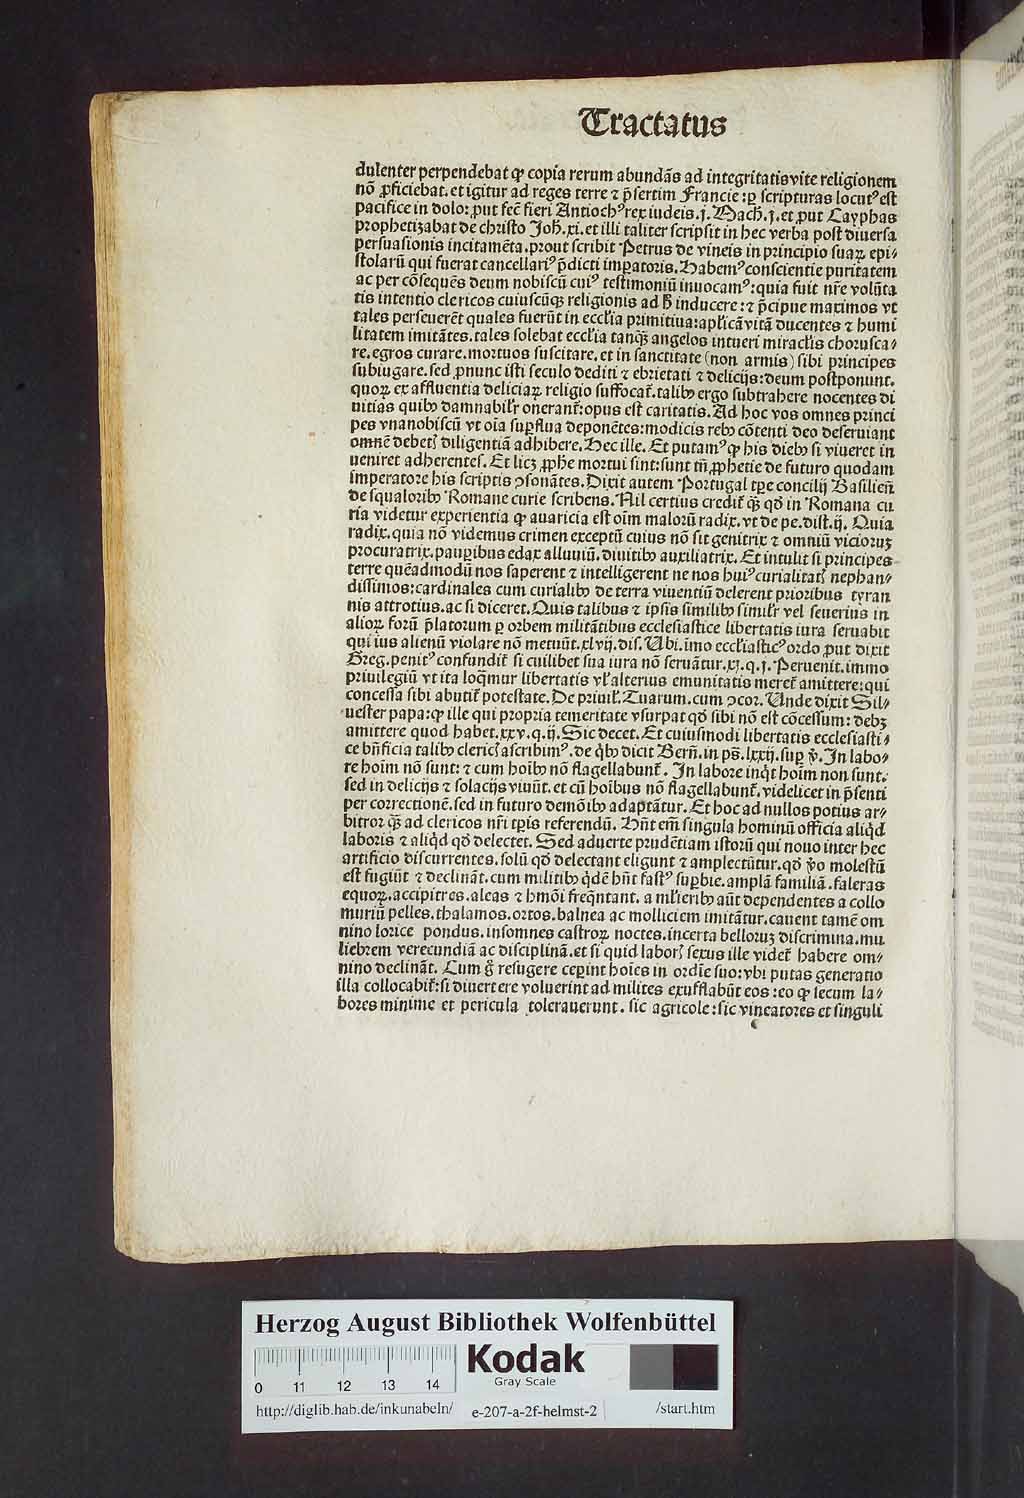 Tractatus
dulenter perpendebat ꝙ copia rerum abundãs ad integritatis vite religionem
nõ ꝓficiebat. et igitur ad reges terre ⁊ p̃sertim Francie: ꝑ scripturas locutꝰ est
pacifice in dolo: ꝓut fec̃ fieri Antiochꝰ rex iudeis. j. Mach. j. et ꝓut Cayphas
prophetizabat de christo Joh̃. xi. et illi taliter scripsit in hec verba post diuersa
persuasionis incitamẽta. prout scribit Petrus de vineis in principio suaꝝ epi⸗
stolarũ qui fuerat cancellariꝰ p̃dicti imꝑatoris. Habemꝰ conscientie puritatem
ac per cõsequẽs deum nobiscũ cuiꝰ testimoniũ inuocamꝰ: quia fuit nr̃e volũta
tis intentio clericos cuiuscũqꝫ religionis ad h̃ inducere: ⁊ p̃cipue maximos vt
tales perseuerẽt quales fuerũt in eccľia primitiua: apľicã vitã ducentes ⁊ humi
litatem imitãtes. tales solebat eccľia tanqꝫ angelos intueri miracľis chorusca⸗
re. egros curare. mortuos suscitare. et in sanctitate (non armis) sibi principes
subiugare. sed ꝓnunc isti seculo dediti ⁊ ebrietati ⁊ delicijs: deum postponunt.
quoꝝ ex affluentia deliciaꝝ religio suffocat̃. talibꝰ ergo subtrahere nocentes di
uitias quibꝰ damnabiľr onerant̃: opus est caritatis. Ad hoc vos omnes princi
pes vna nobiscũ vt oĩa suꝑflua deponẽtes: modicis rebꝰ cõtenti deo deseruiant
omnẽ debetꝭ diligentiã adhibere. Hec ille. Et putamꝰ ꝙ his diebꝰ si viueret in
ueniret adherentes. Et licꝫ ꝓphe mortui sint: sunt tñ ꝓphetie de futuro quodam
imperatore his scriptis ꝯsonãtes. Dixit autem Portugal tꝑe concilij Basilieñ
de squaloribꝰ Romane curie scribens. Nil certius credit̃ qꝫ qđ in Romana cu
ria videtur experientia ꝙ auaricia est oĩm malorũ radix. vt de pe. dist. ij. Quia
radix. quia nõ videmus crimen exceptũ cuius nõ sit genitrix ⁊ omniũ vicioruꝫ
procuratrix. pauꝑibus edax alluuiũ. diuitibꝰ auxiliatrix. Et intulit si principes
terre quẽadmodũ nos saperent ⁊ intelligerent ne nos huiꝰ curialitatꝭ nephan⸗
dissimos: cardinales cum curialibꝰ de terra viuentiũ delerent prioribus tyran
nis attrotius. ac si diceret. Quis talibus ⁊ ipsis similibꝰ simiľr vel seuerius in
alioꝝ forũ p̃latorum ꝑ orbem militãtibus ecclesiastice libertatis iura seruabit
qui ius alienũ violare nõ metuũt. xlvij. dis. Vbi. imo eccľiasticꝰ ordo ꝓut dixit
Greg. penitꝰ confundit̃ si cuilibet sua iura nõ seruãtur. xj. q. j. Peruenit. immo
priuilegiũ vt ita loq̃mur libertatis vľ alterius emunitatis meret̃ amittere: qui
concessa sibi abutit̃ potestate. De priuiľ. Tuarum. cum ꝯcor. Unde dixit Sil⸗
uester papa: ꝙ ille qui propria temeritate vsurpat qđ sibi nõ est cõcessum: debꝫ
amittere quod habet. xxv. q. ij. Sic decet. Et cuiusmodi libertatis ecclesiasti⸗
ce bñficia talibꝰ clericꝭ ascribimꝰ. de q̃bꝰ dicit Berñ. in ps̃. lxxij. suꝑ ṽ. In labo⸗
re hoĩm nõ sunt: ⁊ cum hoĩbꝰ nõ flagellabunt̃. In labore inq̃t hoĩm non sunt.
sed in delicijs ⁊ solacijs viuũt. et cũ hoĩbus nõ flagellabunt̃. videlicet in p̃senti
per correctionẽ. sed in futuro demõibꝰ adaptãtur. Et hoc ad nullos potius ar⸗
bitror qꝫ ad clericos nr̃i tꝑis referendũ. Hñt em̃ singula hominũ officia aliq̃d
laboris ⁊ aliq̃d qđ delectet. Sed aduerte prudẽtiam istorũ qui nouo inter hec
artificio discurrentes. solũ qđ delectant eligunt ⁊ amplectũtur. qđ ṽo molestũ
est fugiũt ⁊ declinãt. cum militibꝰ q̃dẽ hñt fastꝰ suꝑbie. amplã familiã. faleras
equoꝝ. accipitres. aleas ⁊ hmõi freq̃ntant. a mľieribꝰ aũt dependentes a collo
muriũ pelles. thalamos. ortos. balnea ac molliciem imitãtur. cauent tamẽ om
nino lorice pondus. insomnes castroꝝ noctes. incerta belloruꝫ discrimina. mu
liebrem verecundiã ac disciplinã. et si quid laborꝭ sexus ille videt̃ habere om⸗
nino declinãt. Cum g̃ resugere ceꝑint hoĩes in ordĩe suo: vbi putas generatio
illa collocabit̃: si diuertere voluerint ad milites exufflabũt eos: eo ꝙ secum la⸗
bores minime et pericula tolerauerunt. sic agricole: sic vineatores et singuli
Herzog August Bibliothek Wolfenbüttel
0 11 12 13 14
Kodak
Gray Scale
http://diglib.hab.de/inkunabeln/ e-207-a-2f-helmst-2 /start.htm